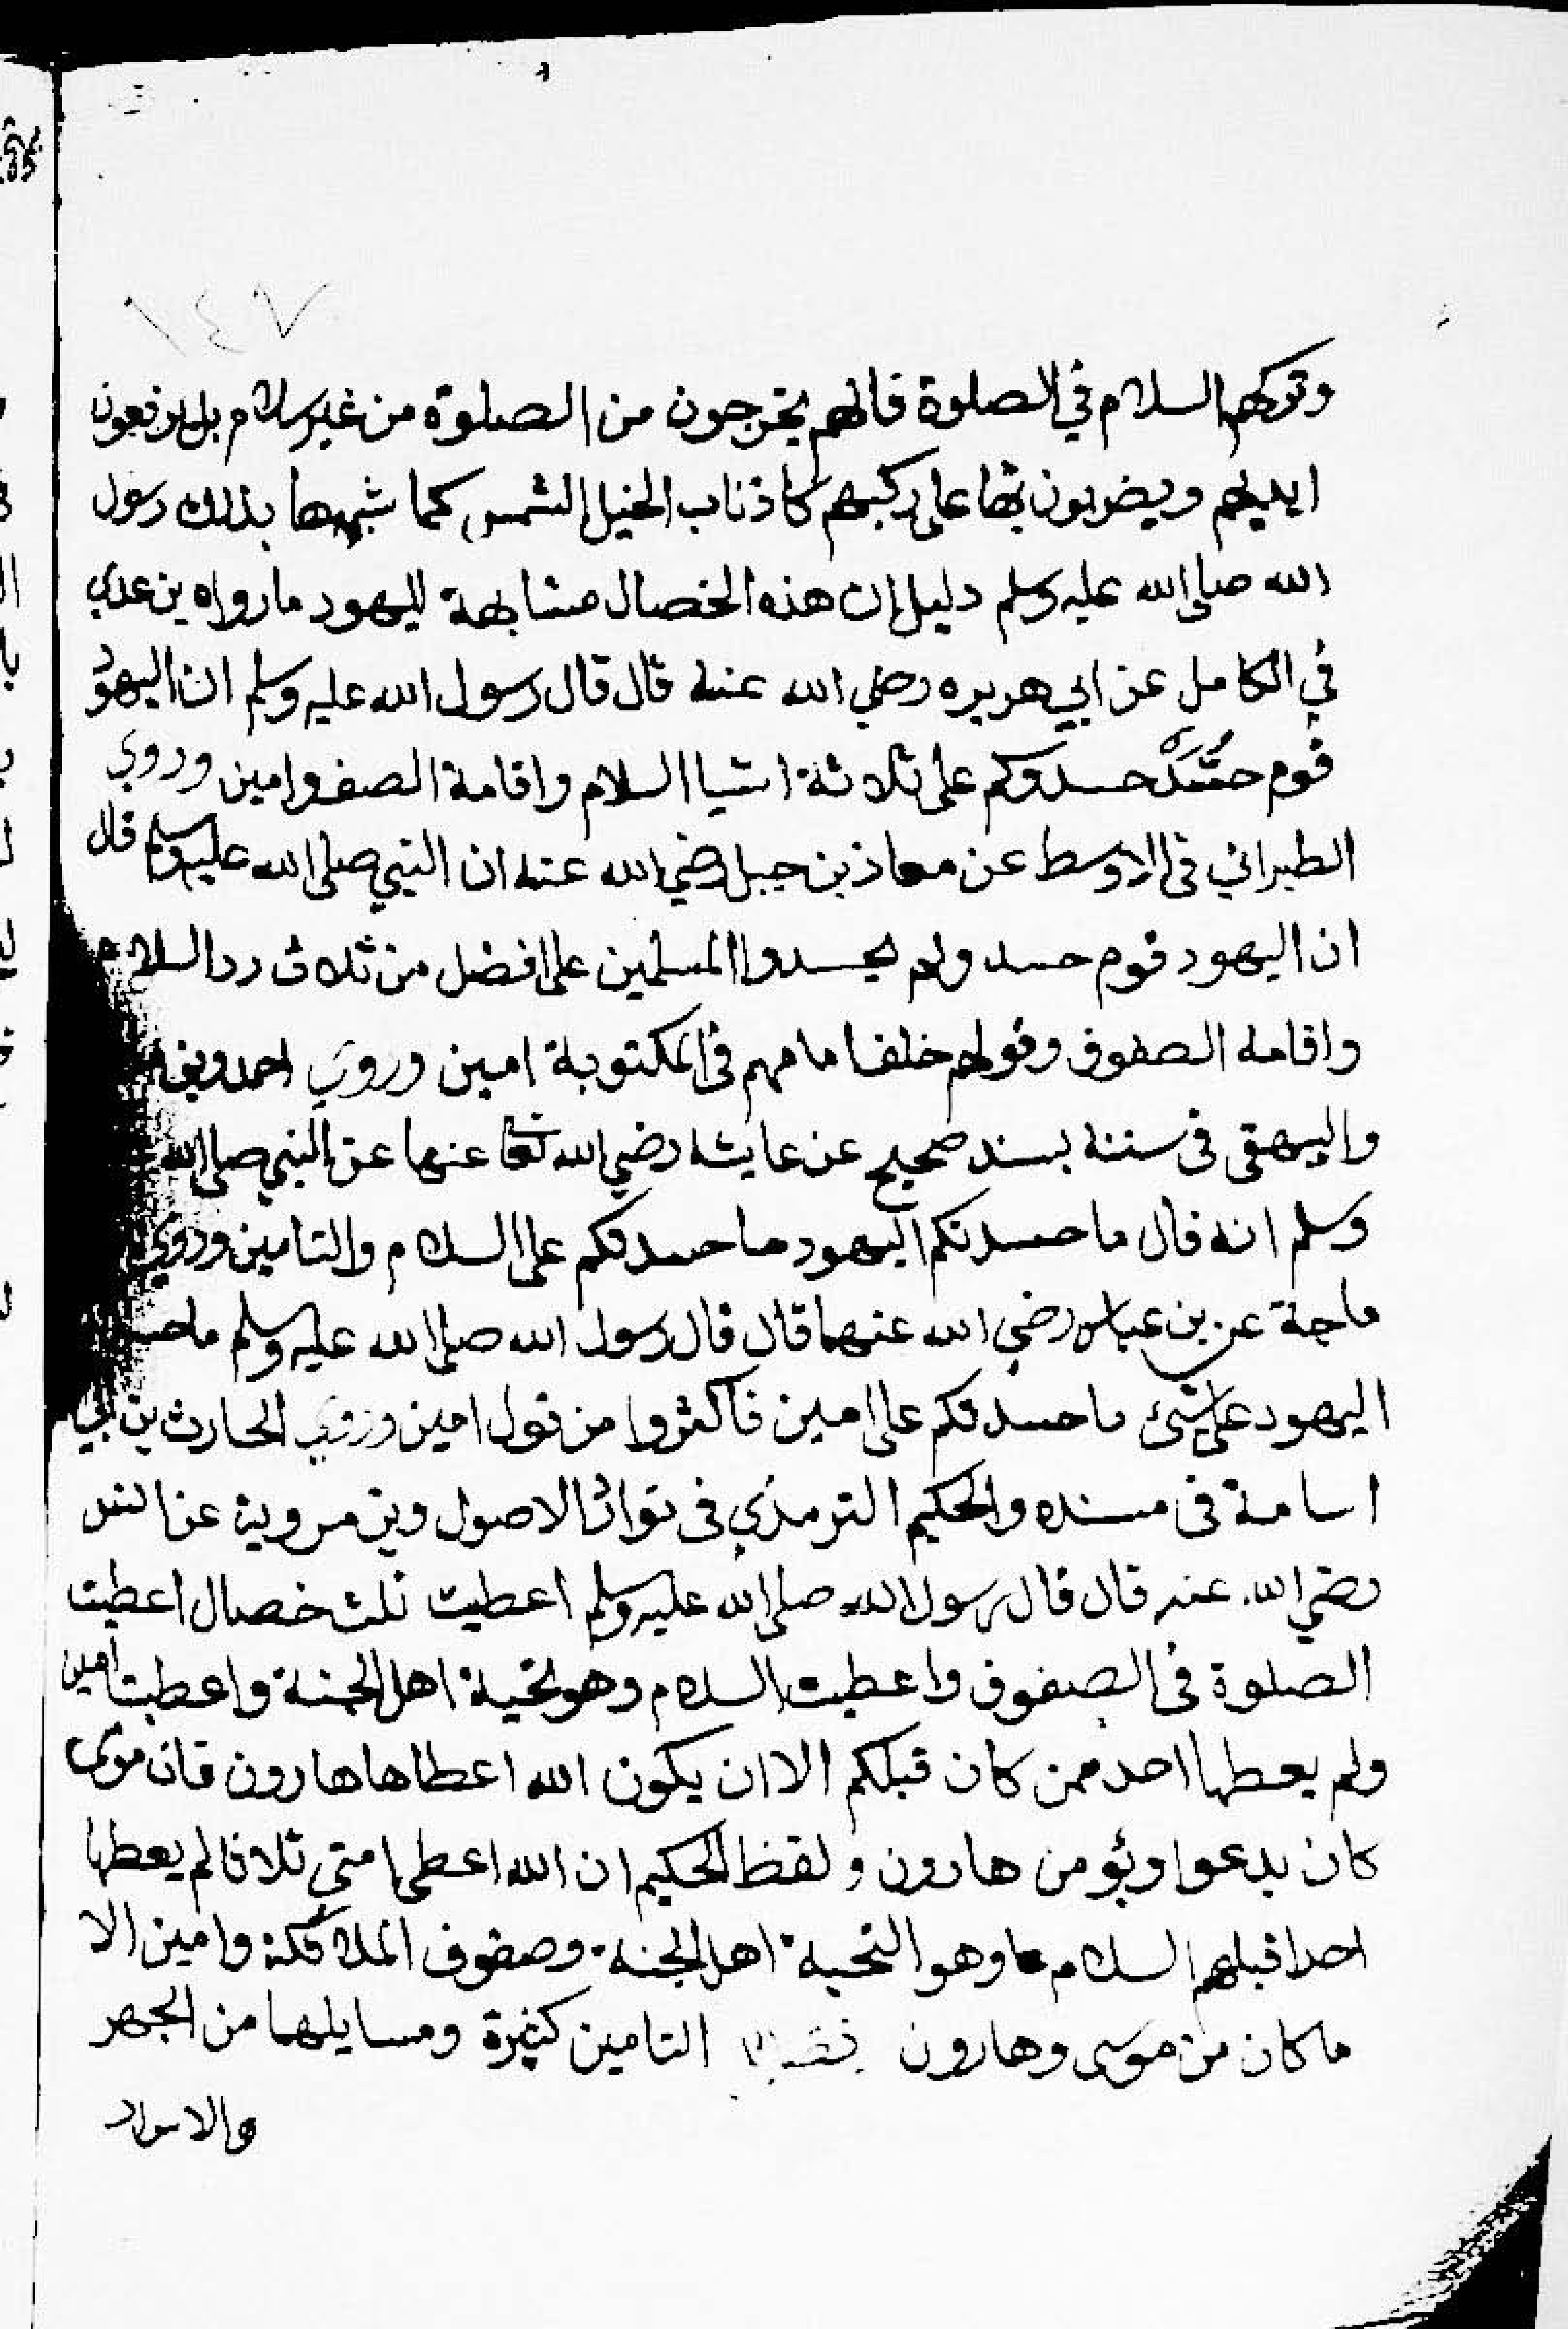 ١٤٧
وتركهم السلام في الصلوة فانهم يخرجون من الصلوة من غير سلام بل يرفعون
ايديهم ويضربون بها على ركبهم كاذناب الخيل الشمس كما شبهها بذلك رسول
الله صلى الله عليه وسلم دليل ان هذه الخصال مشابهة لليهود ما رواه بن عدي
في الكامل عن ابي هريره رضي الله عنه قال قال رسول الله عليه وسلم ان اليهود
قوم حُسَّدٌ حسدوكم على ثلاثة اشيا السلام واقامة الصف وامين وروي
الطبراني في الاوسط عن معاذ بن جبل رضي الله عنه ان النبي صلى الله عليه وسلم قال
ان اليهود قوم حسد ولم يحسدوا المسلمين على افضل من ثلاث رد السلام
واقامه الصفوف وقولهم خلف امامهم في المكتوبة امين وروي احمد وبن
والبيهقى في سننه بسند صحيح عن عايشه رضي الله تعا عنها عن النبي صلى الله
وسلم انه قال ما حسدتكم اليهود ما حسدتكم على السلام والتامين وروي
ماجة عن بن عباس رضي الله عنهما قال قال رسول الله صلى الله عليه وسلم ما حسد
اليهود على شئ ما حسدتكم على امين فاكثروا من قول امين وروي الحارث بن ابي
اسامة في مسنده والحكيم الترمذي في نوادر الاصول وبن مروية عن انس
رضي الله عنه قال قال رسول الله صلى الله عليه وسلم اعطيت ثلث خصال اعطيت
الصلوة في الصفوف واعطيت السلام وهو تحية اهل الجنة واعطيت امين
ولم يعطها احد ممن كان قبلكم الا ان يكون الله اعطاها هارون فان موسى
كان يدعوا ويؤمن هارون ولفظ الحكيم ان الله اعطى امتي ثلاثا لم يعطها
احدا قبلهم السلام وهو التحية اهل الجنة وصفوف الملائكة وامين الا
ما كان من موسى وهارون التامين كثيرة ومسايلها من الجهر
والاسرار